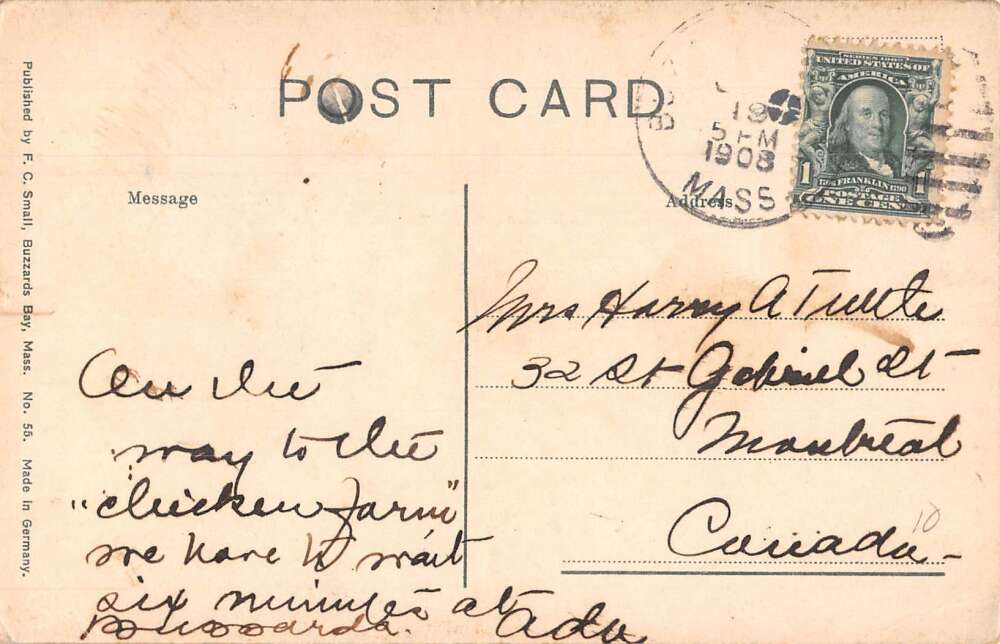 POST CARD
Published by F. C. Small, Buzzards Bay, Mass. No. 55. Made in Germany.
Message
Address
19
5 PM
1908
MASS
SERIES 1902
UNITED STATES OF
AMERICA
1 1
1706 FRANKLIN 1790
POSTAGE
ONE CENT
On the
way to the
"chicken farm"
we have to wait
six minutes at
Buzzards.
Ada
Mrs Harry A Tuttle
32 St Gabriel St
Montreal
Canada -
10